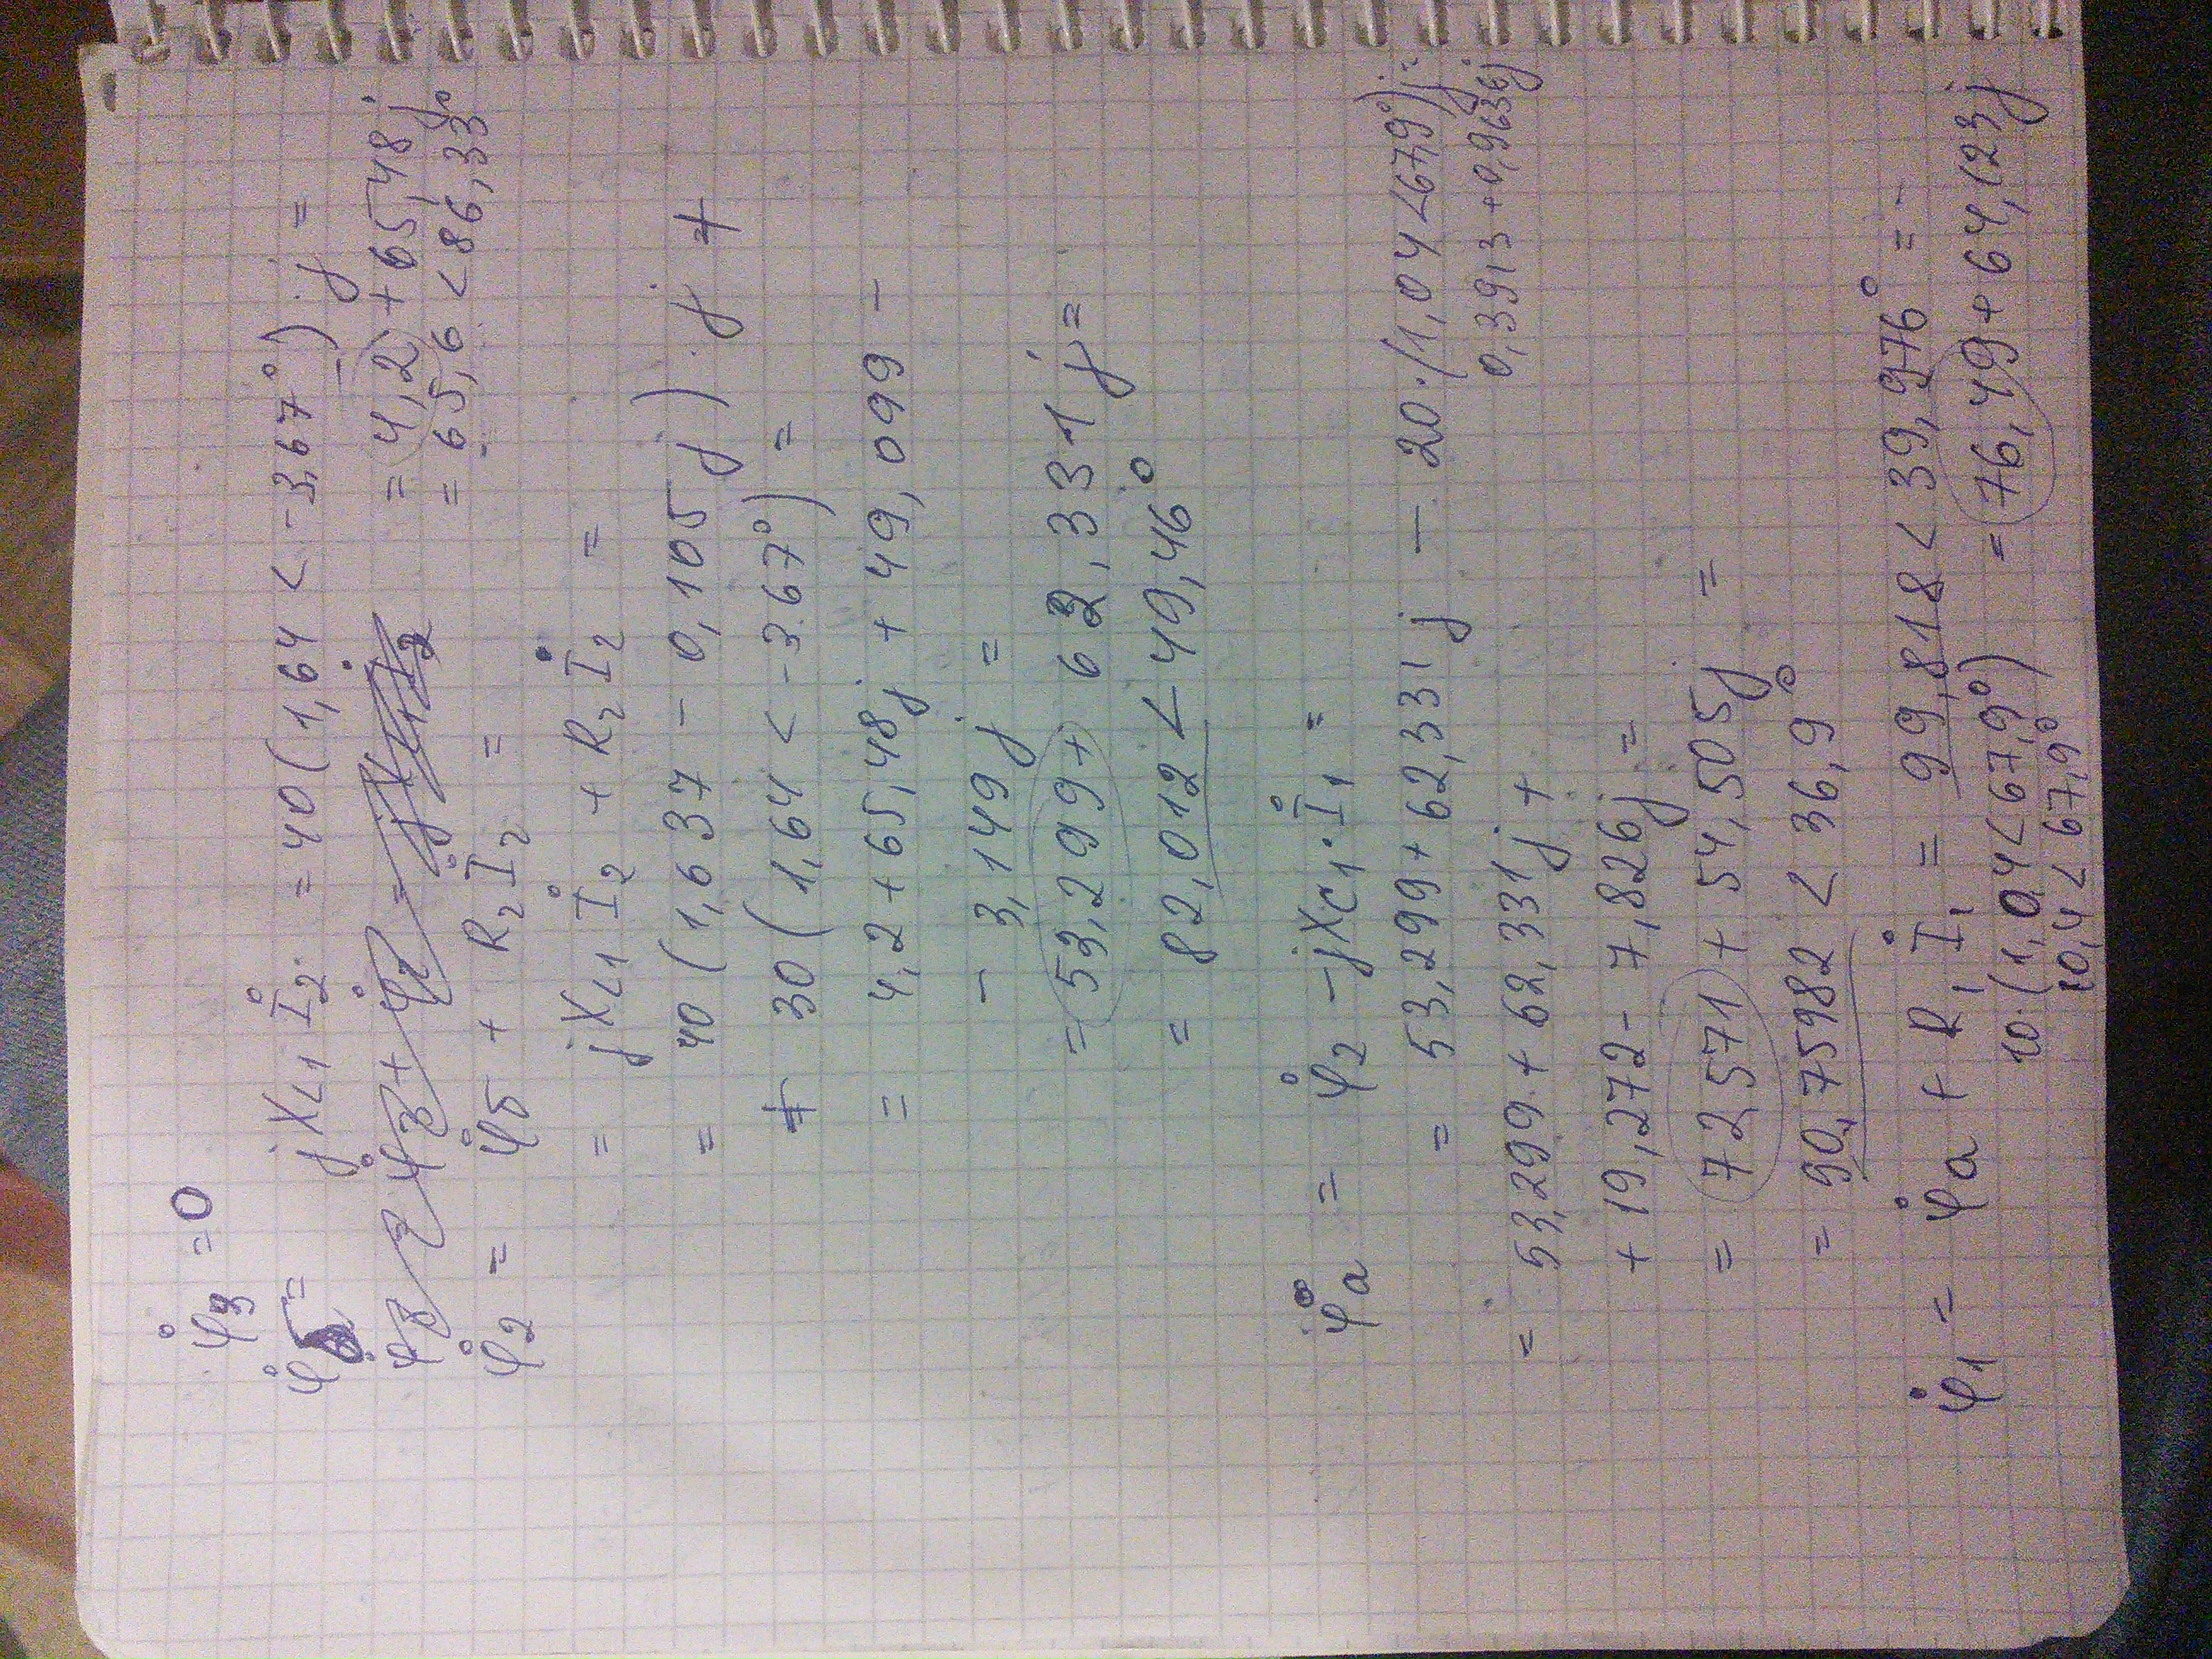 φ̇₃ = 0
φ̇б = jX_L1 İ₂ = 40(1,64 < -3,67°) j =
= 4,2 + 65,48 j
= 65,6 < 86,33°
φ̇₂ = φ̇б + R₂ İ₂ =
= jX_L1 İ₂ + R₂ İ₂ =
= 40 (1,637 - 0,105 j) · j +
+ 30 (1,64 < -3.67°) =
= 4,2 + 65,48 j + 49,099 -
- 3,149 j =
= 53,299 + 62,331 j =
= 82,012 < 49,46°
φ̇a = φ̇₂ - jX_C1 · İ₁ =
= 53,299 + 62,331 j - 20 · (1,04 < 67,9°) j =
0,3913 + 0,9636 j
= 53,299 + 62,331 j +
+ 19,272 - 7,826 j =
= 72,571 + 54,505 j =
= 90,75982 < 36,9°
φ̇₁ = φ̇a + R₁ İ₁ = 99,818 < 39,976° =
10 · (1,04 < 67,9°)
= 76,49 + 64,123 j
10,4 < 67,9°